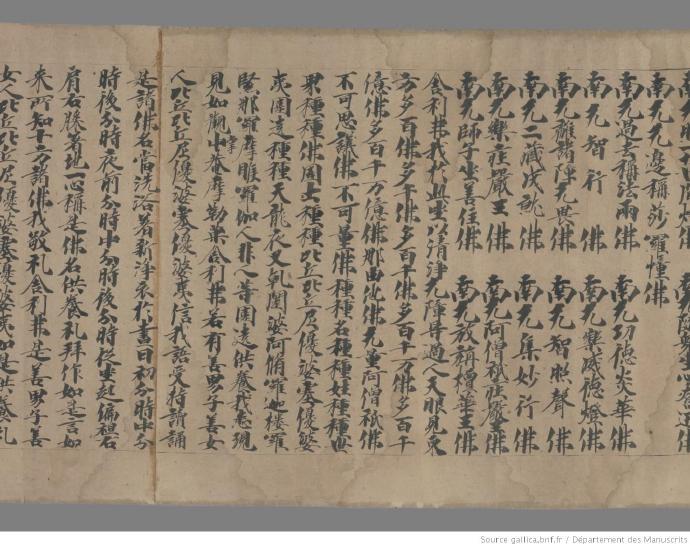 南无无邊稱莎羅幢佛
南无過去稱法雨佛 南无功德炎華佛
南无智行佛 南无樂威德燈佛
南无離諸障无畏佛 南无智照聲佛
南无二藏成就佛 南无集妙行佛
南无樂莊嚴王佛 南无阿僧祇莊嚴王佛
南无師子坐善住佛 南无放稱檀華王佛
舍利弗我於此坐以清淨无障导過人天眼見東
方多百佛多千佛多百千佛多百千万佛多百千
億佛多百千万億佛那由他佛无量阿僧祇佛
不可思議佛不可量佛種種名種種姓種種世
界種種佛國土種種比丘比丘尼優婆塞優婆
夷圍遶種種天龍夜叉乹闥婆阿脩羅迦樓羅
緊那羅摩睺羅伽人非人等圍遶供養我悉現
見如觀掌中菴摩勒菓舍利弗若有善男子善女
人比丘比丘尼優婆塞優婆夷信我語受持讀誦
是諸佛名當洗浴著新淨衣於晝日初分時中分
時後分時夜前分時中分時後分時從坐起偏袒右
肩右膝著地一心稱是佛名供養礼拜作如是言如
來所知十方諸佛我敬礼舍利弗是善男子善
女人比丘比丘尼優婆塞優婆夷如是供養礼
Source gallica.bnf.fr / Département des Manuscrits